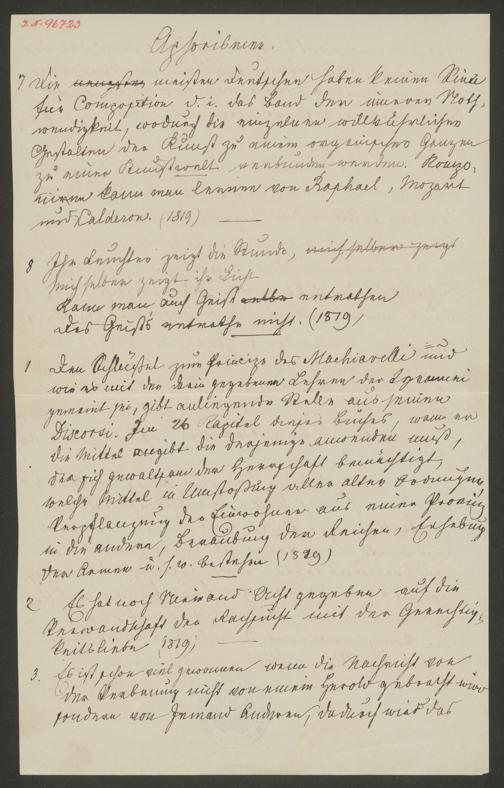 I.N. 96723
Aphorismen.
7 Die neuesten meisten Deutschen haben keinen Sinn
für Composition d. i. das Band der inneren Noth-
wendigkeit, wodurch die einzelnen willkührlichen
Gestalten der Kunst zu einem organischen Ganzen
zu einer Kunstwelt verbunden werden. Kompo-
niren kann man lernen von Raphael, Mozart
und Calderon. (1819)
8 Ihr Leuchter zeigt die Stunde, mich selber zeigt
Mich selber zeigt ihr Licht
Kann man auch Geist entrathen
Des Geist's entrathe nicht. (1819)
1 Den Schlüssel zum Principe des Machiavelli und
wie es mit den darin gegebenen Lehren der Tyrannei
gemeint sei, gibt anliegende Stelle aus seinen
Discorsi. Im 26 Capitel dieses Buches, wenn er
die Mittel angibt die derjenige anwenden muß,
der sich gewaltsam der Herrschaft bemächtigt,
welche Mittel in Umstoßung aller alten Ordnungen
Verpflanzung der Einwohner aus einer Provinz
in die andere, Beraubung der Reichen, Erhebung
der Armen u. s. w. bestehen (1819)
2 Es hat noch Niemand Acht gegeben auf die
Verwandschaft der Rachsucht mit der Gerechtig-
keitsliebe (1819)
3. Es ist schon viel gewonnen wenn die Nachricht von
der Verbannung nicht von einem Herold gebracht wird
sondern von Jemand Anderen, dadurch wird das